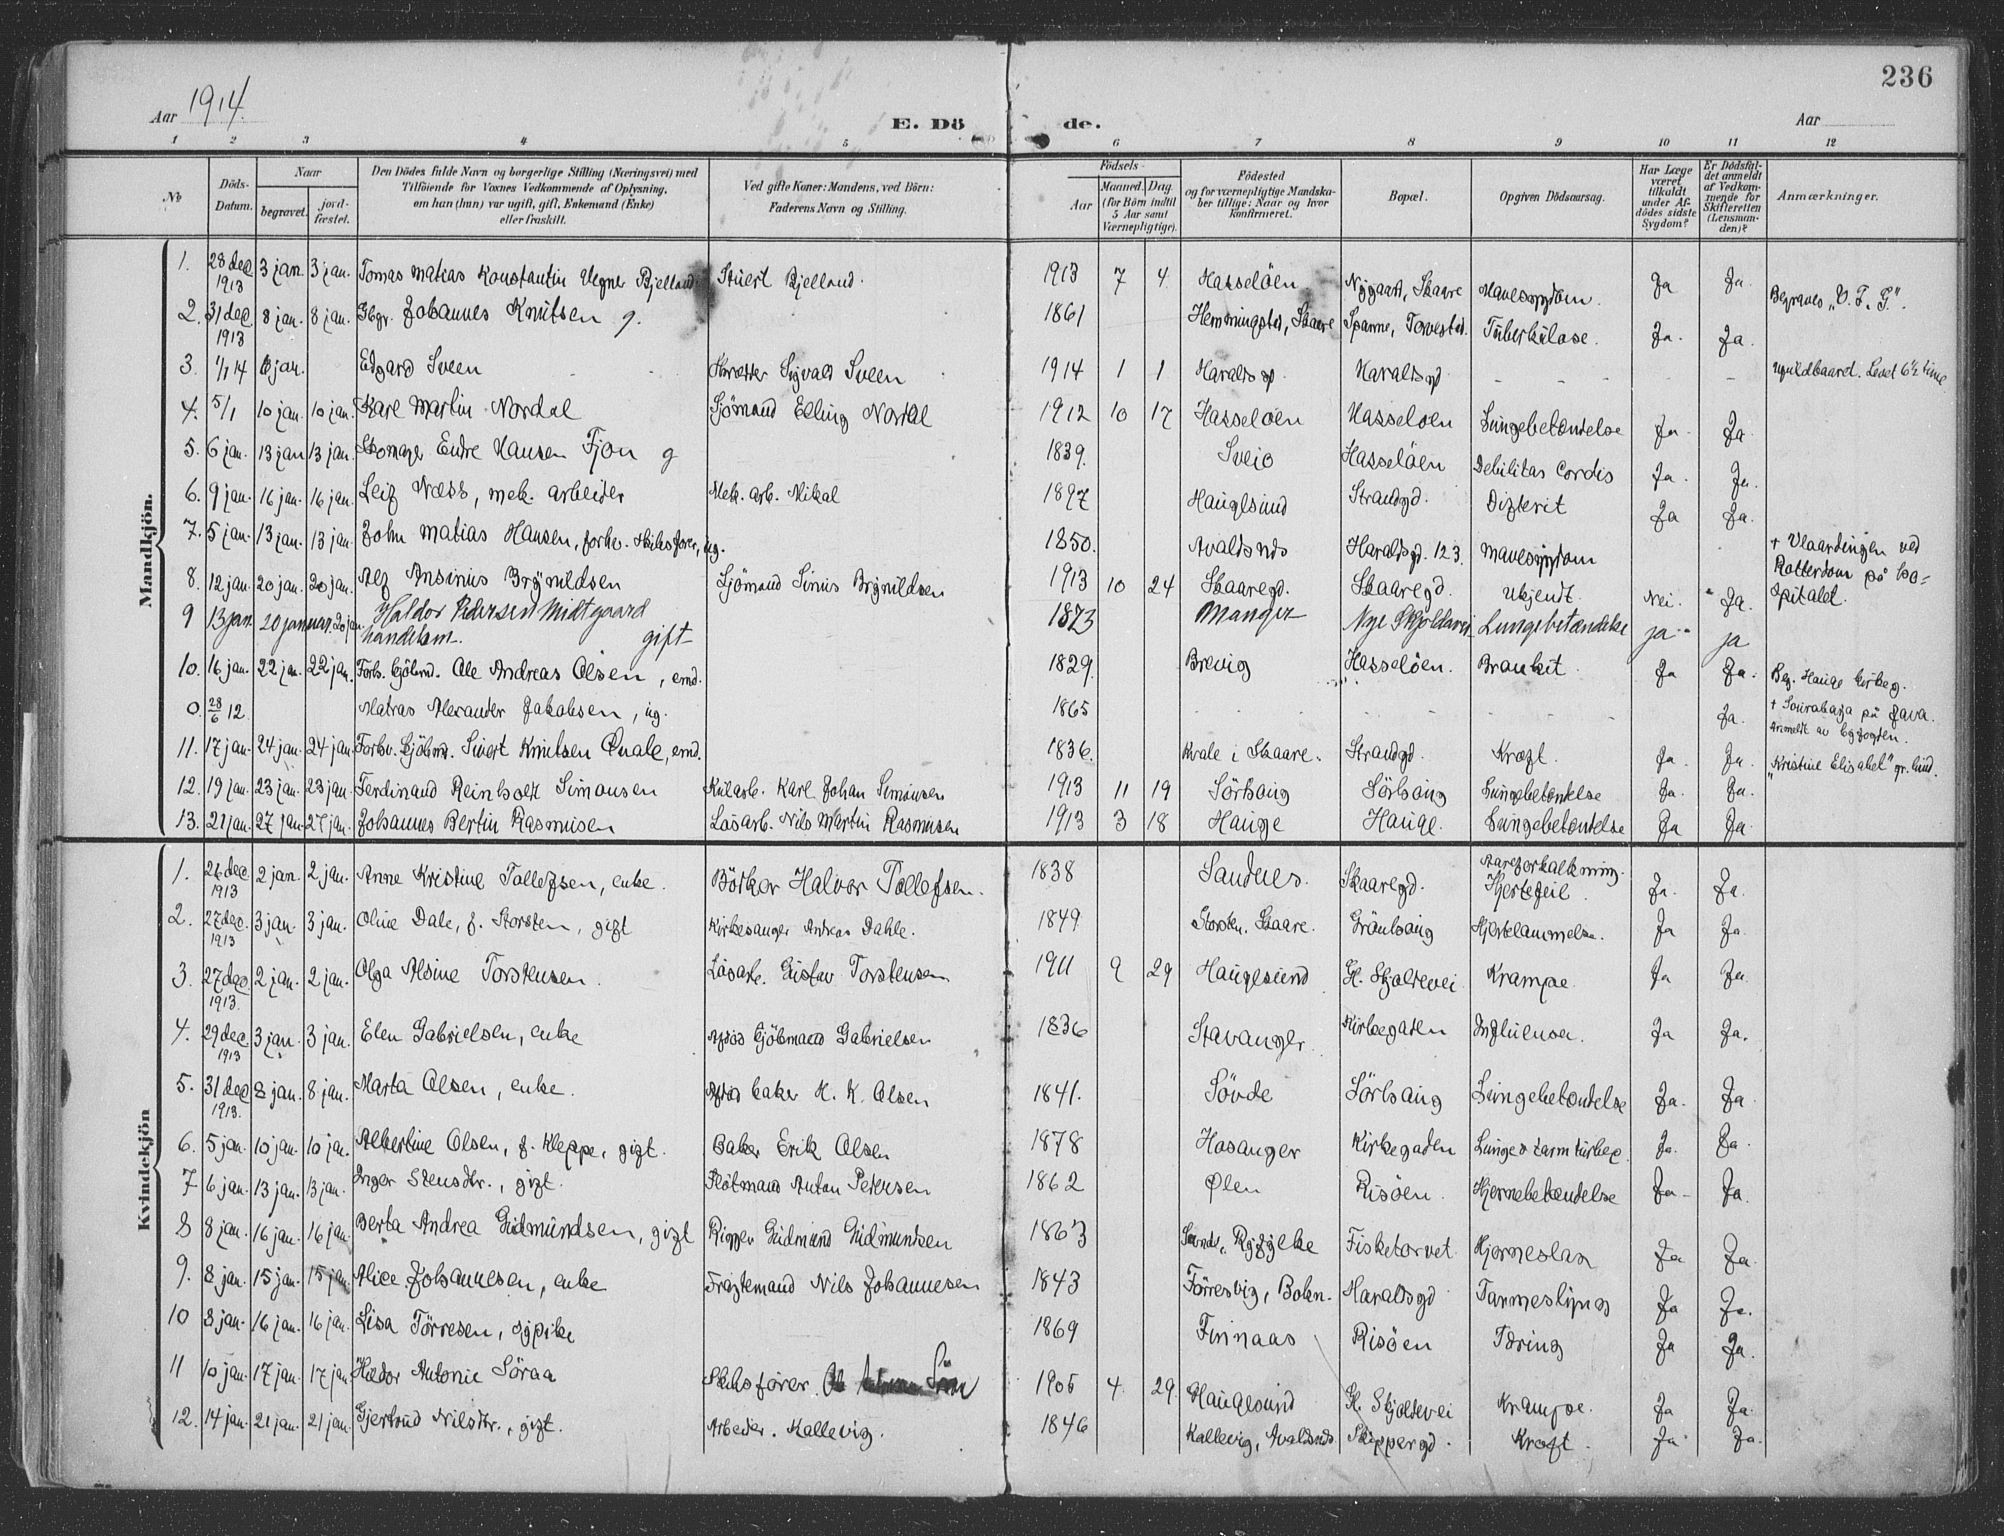 236
Aar 1914.
E. Dö de.
Aar
1 2 3 4 5 6 7 8 9 10 11 12
No
Döds-Datum.
Naar
begravet.
jord-fæstet.
Den Dödes fulde Navn og borgerlige Stilling (Næringsvei) med
Tilföiende for Voxnes Vedkommende af Oplysning,
om han (hun) var ugift, gift, Enkemand (Enke)
eller fraskilt.
Ved gifte Koner: Mandens, ved Börn:
Faderens Navn og Stilling.
Födsels-
Aar
Maaned. Dag.
(for Börn indtil
5 Aar samt
Værnepligtige).
Födested
og for værnepligtige Mandska-
ber tillige: Naar og hvor
konfirmeret.
Bopæl.
Opgiven Dödsaarsag.
Har Læge
været
tilkaldt
under Af-
dödes sidste
Sygdom?
Er Dödsfal-
det anmeldt
af Vedkom-
mende for
Skifteretten
(Lensman-
den)?
Anmærkninger.
Mandkjön.
1. 28 dec 1913 3 jan. 3 jan. Tomas Matias Konstantin Vegner Bjelland Stuert Bjelland. 1913 7 4 Hasseløen Nygaard, Skaare Mavesygdom. Ja Ja. Begraves "V. F. G".
2. 31 dec 1913 8 jan. 8 jan. Gbgr. Johannes Knutsen g. 1861 Hemmingstad, Skaare Spanne, Torvestad. Tuberkulose. Ja. Ja.
3. 1/1 14 6 jan. Edgard Sveen Sigvald Sveen 1914 1 1 Haraldsgd Haraldsgd - - - - Levet 6½ time
4. 5/1 10 jan. 10 jan. Karl Martin Nordal Sjömand Elling Nordal 1912 10 17 Hasseløen Hasseløen Lungebetændelse Ja. Ja.
5. 6 jan. 13 jan 13 jan. Skomager Endre Hansen Fjon g 1839. Sveio Hasseløen Debilitas Cordis Ja. Ja.
6. 9 jan. 16 jan. 16 jan. Leif Næss, mek. arbeider Mek. arb. Mikal 1897 Haugesund Strandgd. Difterit Ja Ja.
7. 5 jan. 13 jan. 13 jan. John Matias Hansen, forhv. Skibsfører, ug. 1850. Avaldsnes Haraldsgd. 123. Mavesygdom + Vlaardingen ved Rotterdam på ho-spitalet.
8. 12 jan. 20 jan. 20 jan. Alf Ansinius Brynildsen Sjömand Sinius Brynildsen 1913 10 24 Skaaregd. Skaaregd. Ukjendt. Nei. Ja.
9 13 jan 20 januar. 20 jan. Haldor Pedersen Midtgaard handelsm. gift 1873 Manger Nye Skjoldavei Lungebetændelse ja ja
10. 16 jan. 22 jan. 22 jan. Forh. Sjöbmd. Ole Andreas Olsen, emd. 1829. Brevig Hasseløen. Bronkit. Ja Ja. Beg. Hauge kirkeg.
0. 28/6 12. Matias Alexander Jakobsen, ug. 1865 - - - Ja. + Sourabaja på Java. Anmeldt av byfogden.
11. 17 jan. 24 jan. 24 jan. Forhv. Sjöbmd. Sivert Knutsen Quale, emd. 1836. Kvale i Skaare. Strandgd. Kræft. Ja. Ja. "Kristine Elisabet" gr. lund.
12. 19 jan. 23 jan. 23 jan. Ferdinand Reinholt Simonsen Kularb. Karl Johan Simonsen 1913 11 19 Sörhaug Sörhaug Lungebetændelse Ja. Ja.
13. 21 jan. 27 jan. 27 jan. Johannes Bertin Rasmusen Lösarb. Nils Martin Rasmusen 1913 3 18 Hauge Hauge. Lungebetændelse Ja Ja.
Kvindekjön
1. 26 dec 1913 2 jan. 2 jan. Anne Kristine Tollefsen, enke. Bödker Halvor Tollefsen. 1838 Sandnes. Skaaregd. Aareforkalkning. Hjertefeil. Ja. Ja.
2. 27 dec. 1913 3 jan. 3 jan. Oline Dale, f. Storsten, gift Kirkesanger Andreas Dahle. 1849. Storsten. Skaare. Grönhaug Hjertelammelse. Ja Ja.
3. 27 dec 1913. 2 jan. 2 jan. Olga Alsine Torstensen. Lösarb. Gustav Torstensen 1911 9 29 Haugesund Gl. Skjoldevei Krampe. Ja Ja.
4. 29 dec 1913 3 jan. 3 jan. Elen Gabrielsen, enke Afdöd Sjöbmand Gabrielsen 1836 Stavanger. Kirkegaden Influensa. Ja Ja.
5. 31 dec 1913. 8 jan. 8 jan. Marta Olsen, enke. Afdöd baker H. K. Olsen 1841. Sövde Sörhaug Lungebetændelse Ja. Ja
6. 5 jan. 10 jan. 10 jan. Albertine Olsen, f. Kleppe, gift. Baker Erik Olsen 1878 Hosanger Kirkegaden Lunge & tarmtuberc. Ja. Ja.
7 6 jan. 13 jan. 13 jan. Inger Stensdtr., gift. Flötmand Anton Petersen 1862 Ølen Risöen. Hjernebetændelse Ja - Ja.
8 8 jan. 16 jan. 16 jan. Berta Andrea Gudmundsen, gift Rigger Gudmund Gudmundsen 1863 Sand, Ryfylke Fisketorvet Hjerneslag Ja Ja.
9. 8 jan. 15 jan. 15 jan. Alice Johannesen, enke Fragtemand Nils Johannesen 1843 Förresvig, Bokn. Haraldsgd Tarmeslyng Ja Ja.
10 8 jan. 16 jan. 16 jan. Lisa Törresen, sypike 1869 Finnaas Risöen Tæring Ja Ja.
11 10 jan. 17 jan. 17 jan. Antonie Söraa Skibsfører 1905 4. 29. Haugesund Gl. Skjoldevei Krampe. Ja Ja.
12. 14 jan. 21 jan. 21 jan. Gjertrud Nilsdtr., gift. Arbeider. Kallevig. 1846 Kallevig, Avaldsnes Skippergd. Kræft. Ja Ja.